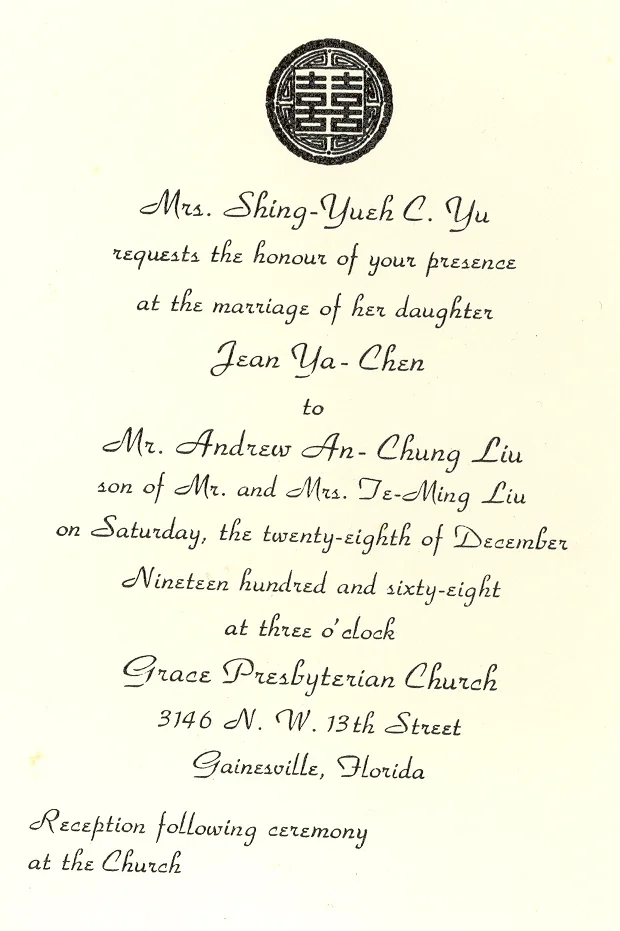 囍
Mrs. Shing-Yueh C. Yu
requests the honour of your presence
at the marriage of her daughter
Jean Ya-Chen
to
Mr. Andrew An-Chung Liu
son of Mr. and Mrs. Te-Ming Liu
on Saturday, the twenty-eighth of December
Nineteen hundred and sixty-eight
at three o'clock
Grace Presbyterian Church
3146 N. W. 13th Street
Gainesville, Florida
Reception following ceremony
at the Church